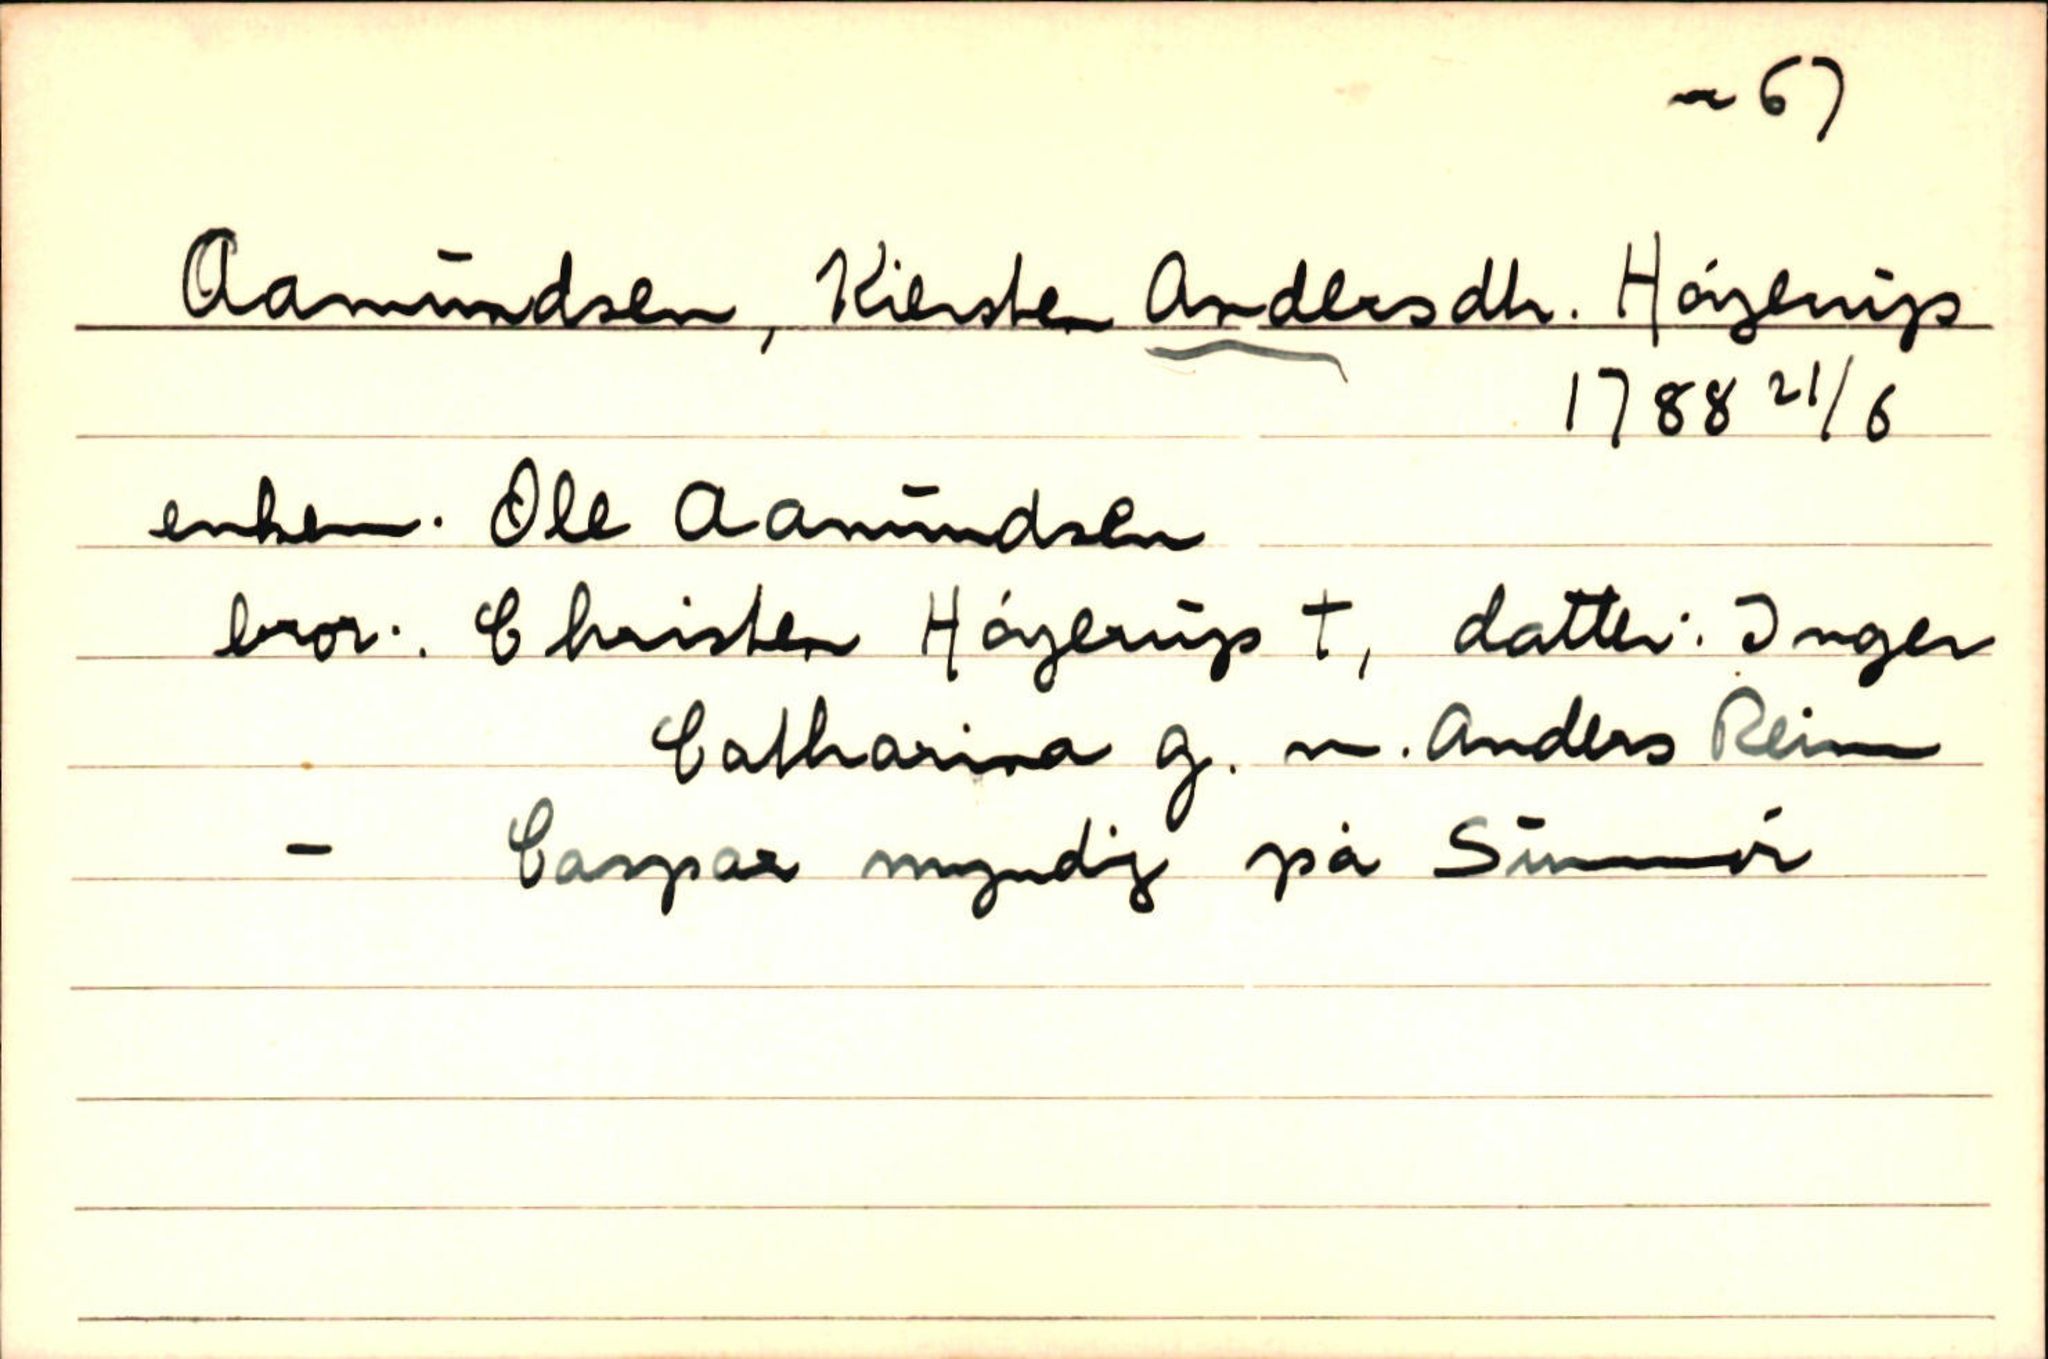 67
Aamundsen, Kiersten Andersdtr. Höyerup
1788 21/6
enkem. Ole Aamundsen
bror: Christen Höyerup †, datter: Inger
Catharina g. m. Anders Reim
– Caspar myndig på Sunmör